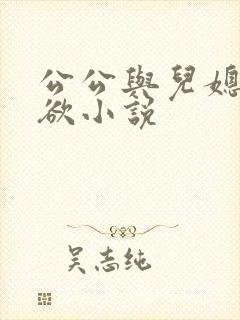 公公與兒媳
欲小說
吴志纯